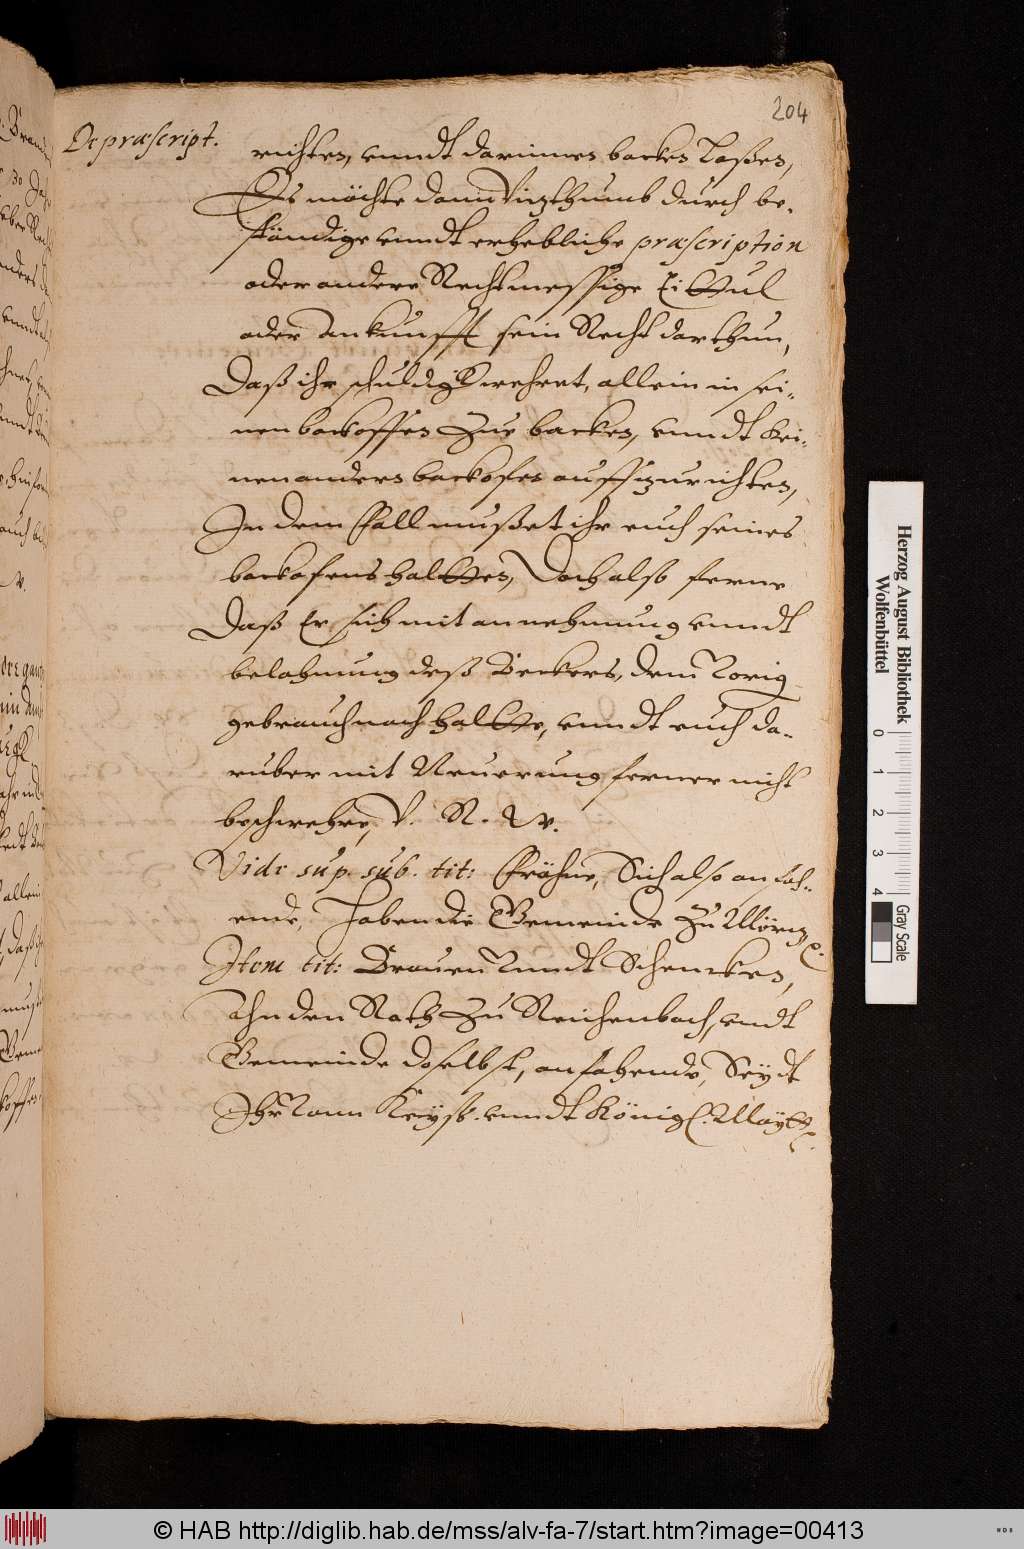 204
De præscript.
richten, vnndt darinnen backen Laßen,
Es möchte dann Vizthumb durch be-
stöndige vnndt erhebliche præscription
oder andere Rechtmessige Tittul
oder Ankunfft sein Recht darthun,
Daß ihr schuldig wehret, allein in sei-
nen backoffen Zue backen, vnndt kei-
nen andern backofen auffzurichten,
In dem Fall musset ihr euch seines
backofens haltten, Doch also ferne
Daß Er sich mit annehmung vnndt
belohnung deß Beckers, dem Vorig
gebrauch nach haltte, vnndt euch da-
ruber mit Neuerung ferner nicht
beschwehre, V. R. W.
Vide sup. sub. tit: Fröhne, Sich also anfah-
ende, Haben die Gemeinde Zu
Item tit: Brauen Vnndt Schencken,
Ahn den Rath Zu Reichenbach, vndt
Gemeinde doselbst, anfahende, Seydt
Ihr Vonn Keyß. vnndt Königl. Maytt
Herzog August Bibliothek
Wolfenbüttel
0 1 2 3 4
Gray Scale
© HAB http://diglib.hab.de/mss/alv-fa-7/start.htm?image=00413